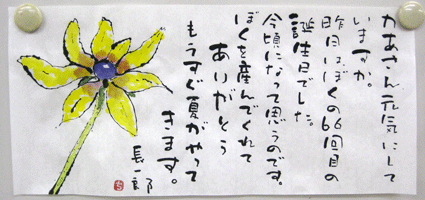 かあさん元気にして
いますか。
昨日はぼくの66回目の
誕生日でした。
今頃になって思うのです。
ぼくを産んでくれて
ありがとう
もうすぐ夏がやって
きます。
長一郎